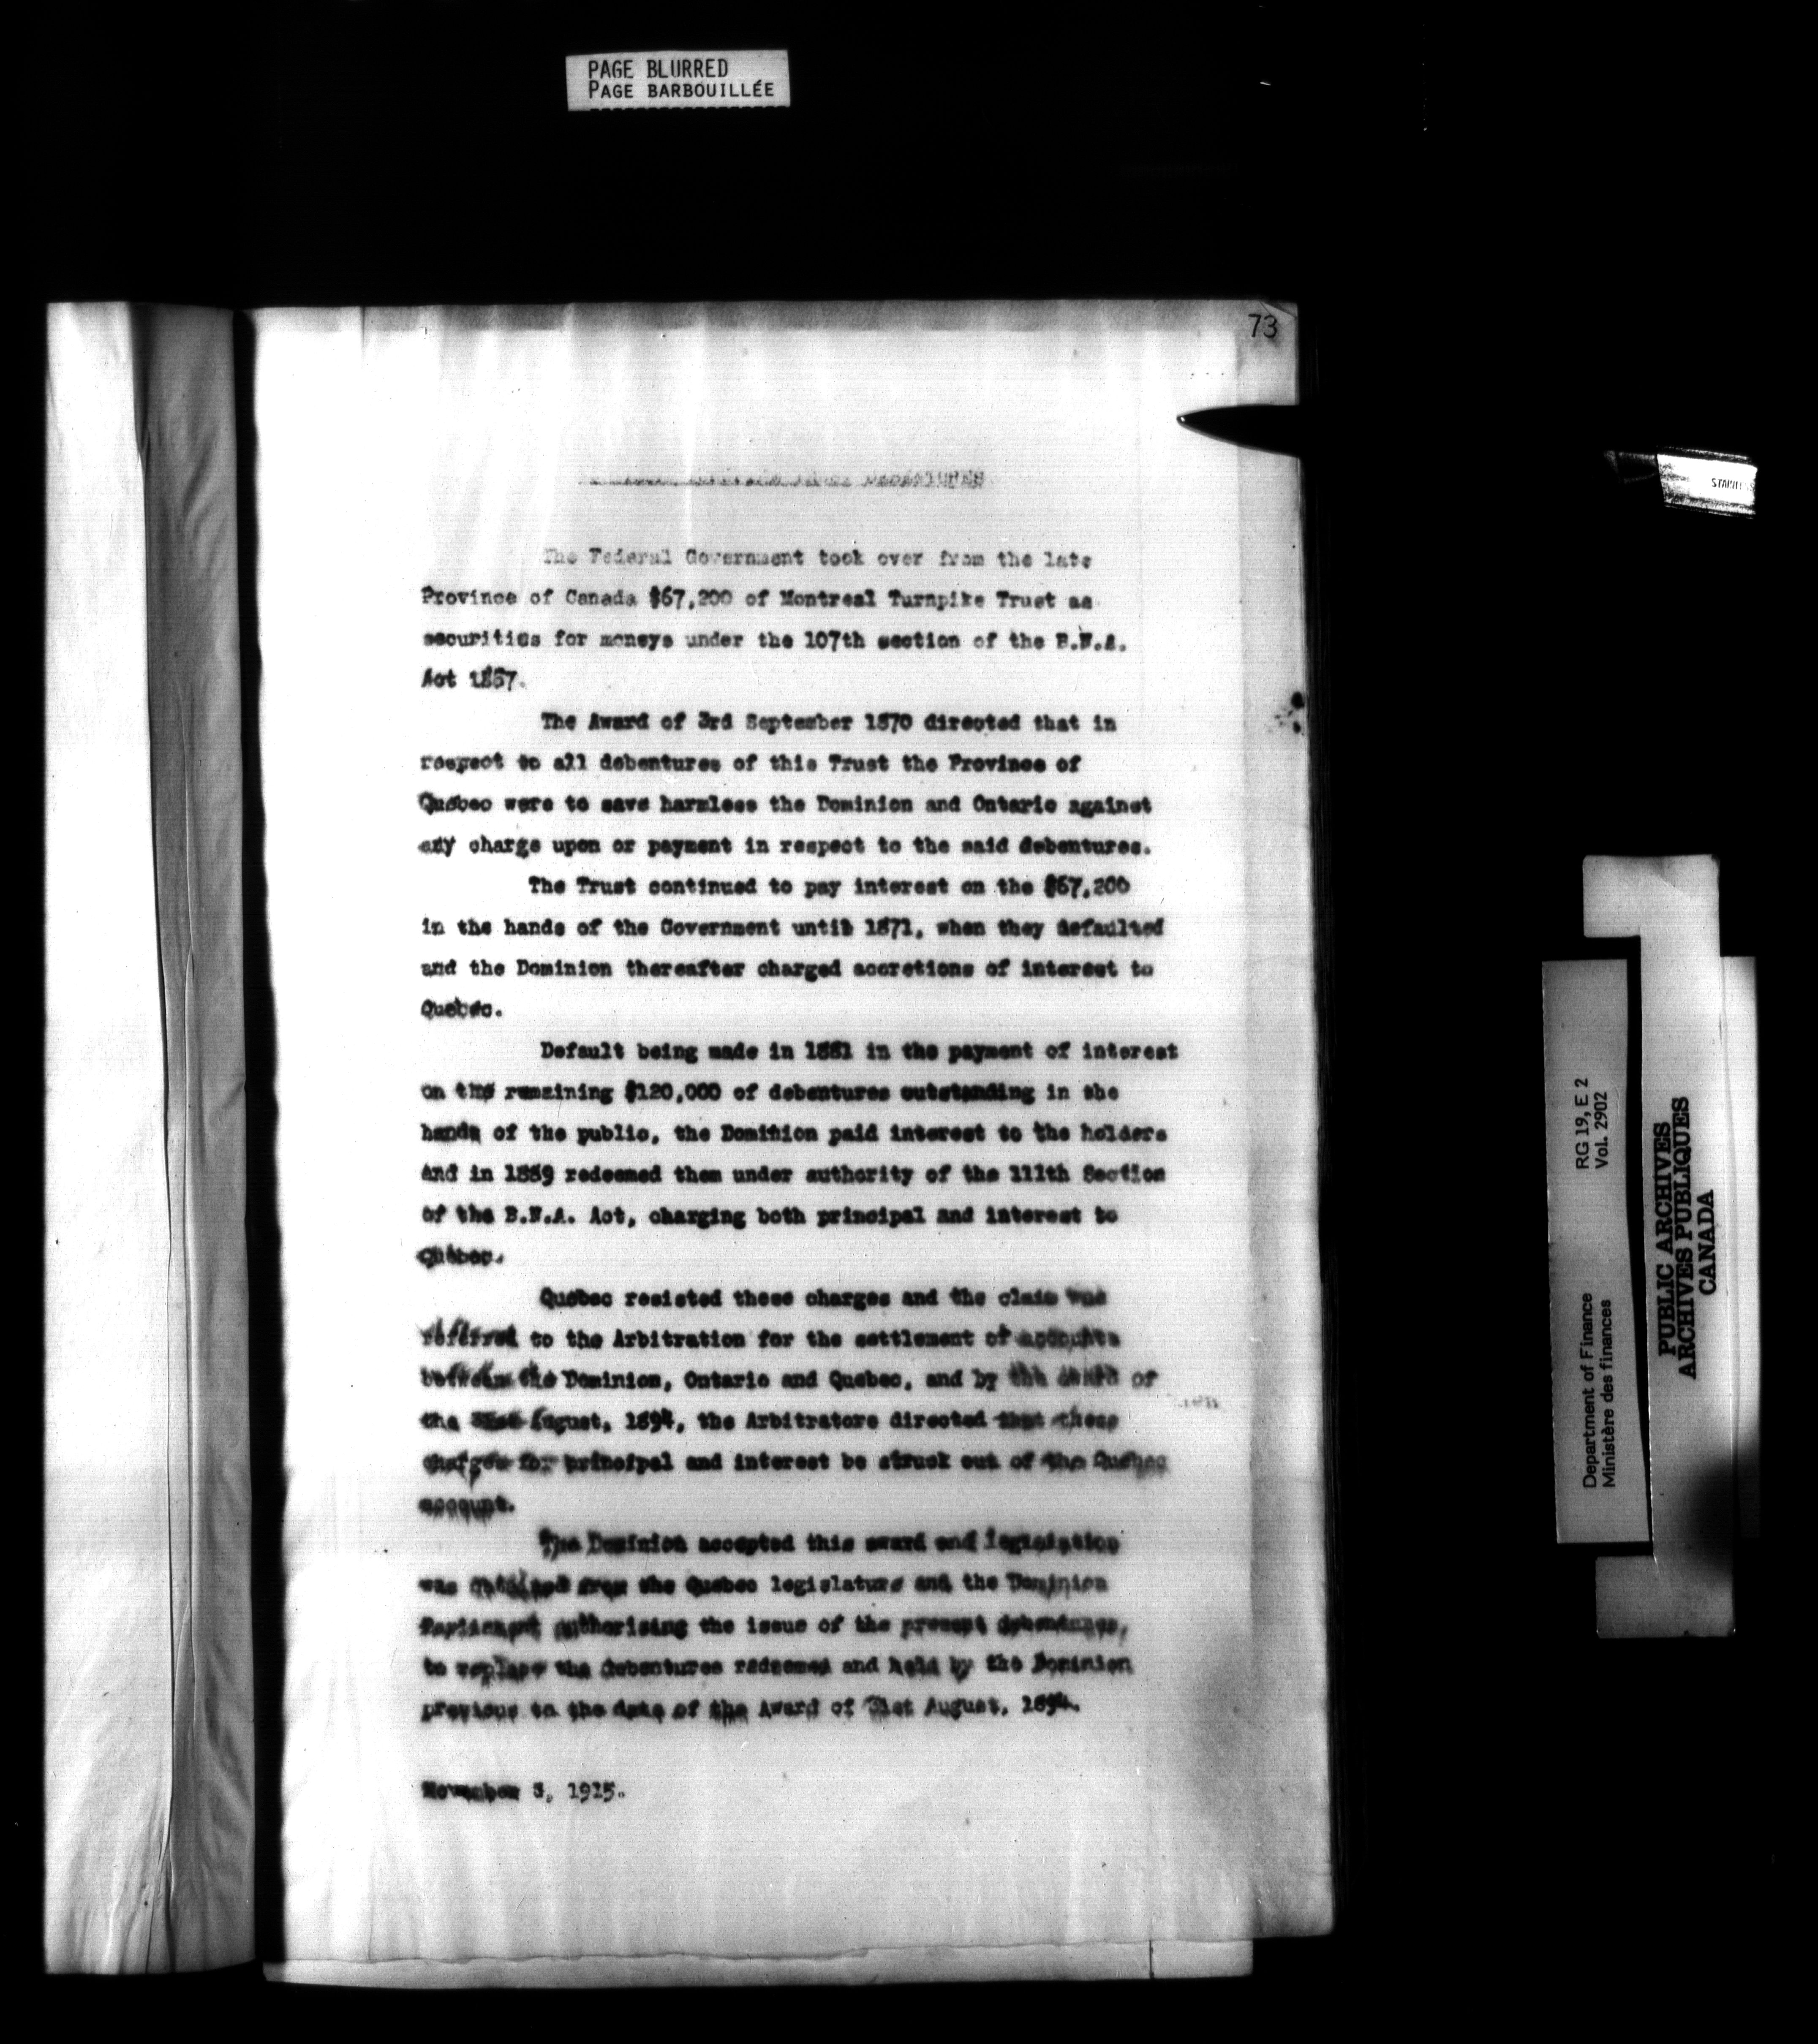 PAGE BLURRED
PAGE BARBOUILLÉE
73
DEBENTURES
The Federal Government took over from the late
Province of Canada $67,200 of Montreal Turnpike Trust as
securities for moneys under the 107th section of the B.N.A.
Act 1867.
The Award of 3rd September 1870 directed that in
respect to all debentures of this Trust the Province of
Quebec were to save harmless the Dominion and Ontario against
any charge upon or payment in respect to the said debentures.
The Trust continued to pay interest on the $67,200
in the hands of the Government until 1871, when they defaulted
and the Dominion thereafter charged accretions of interest to
Quebec.
Default being made in 1881 in the payment of interest
on the remaining $120,000 of debentures outstanding in the
hands of the public, the Dominion paid interest to the holders
and in 1889 redeemed them under authority of the 111th Section
of the B.N.A. Act, charging both principal and interest to
Quebec.
Quebec resisted these charges and the claim was
referred to the Arbitration for the settlement of accounts
between the Dominion, Ontario and Quebec, and by the award of
the 31st August, 1894, the Arbitrators directed that these
charges for principal and interest be struck out of the Quebec
account.
The Dominion accepted this award and legislation
was obtained from the Quebec legislature and the Dominion
Parliament authorising the issue of the present debentures,
to replace the debentures redeemed and held by the Dominion
previous to the date of the Award of 31st August, 1894.
November 3, 1915.
Department of Finance RG 19, E 2
Ministère des finances Vol. 2902
PUBLIC ARCHIVES
ARCHIVES PUBLIQUES
CANADA